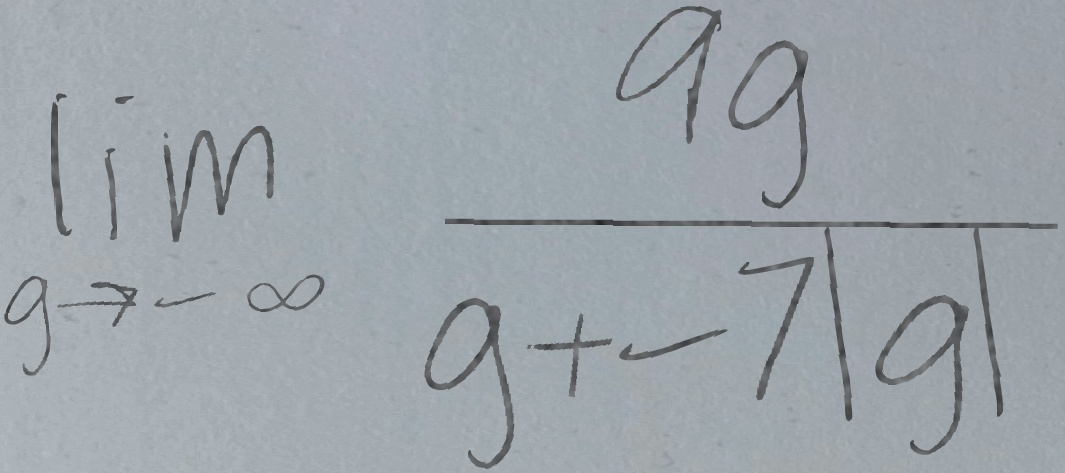 \lim_{g \to -\infty} \frac{9g}{g + -7|g|}